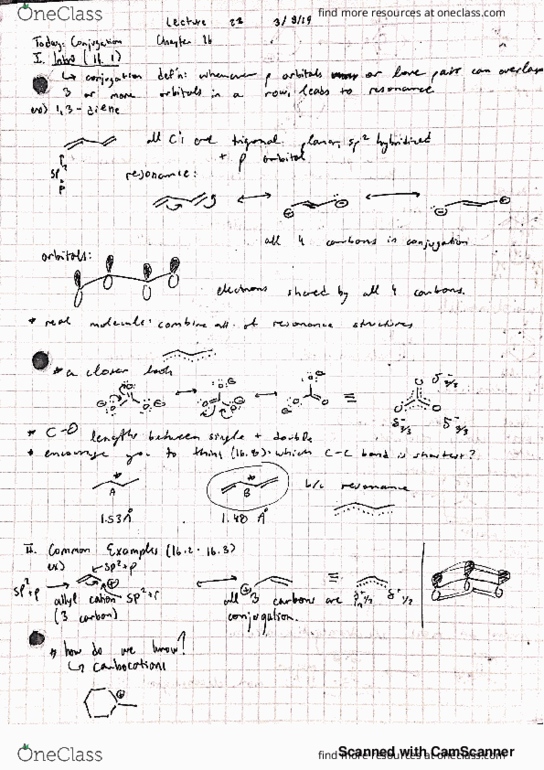 OneClass
find more resources at oneclass.com
Lecture 22 3/8/19
Today: Conjugation Chapter 16
I. Intro (16.1)
↳ conjugation def'n: whenever p orbitals or lone pair can overlap
3 or more orbitals in a row, leads to resonance
ex) 1,3-diene
all C's are trigonal planar, sp² hybridized
+ p orbital
sp²
p
resonance:
⊕ ⊖ ⊖ ⊕
all 4 carbons in conjugation
orbitals:
electrons shared by all 4 carbons.
* real molecule: combine all of resonance structures
* a closer look
δ⁻ 2/3
δ⁻ 2/3 δ⁻ 2/3
* C-O lengths between single + double
* encourage you to think (16.8): which C-C bond is shortest?
A B b/c resonance
1.53Å 1.48 Å
II. Common Examples (16.2-16.3)
ex) sp²+p
sp²+p
allyl cation sp²+p all 3 carbons are δ⁺1/2 δ⁺1/2
(3 carbon) conjugation.
* how do we know?
↳ carbocations
OneClass
find more resources at oneclass.com
Scanned with CamScanner